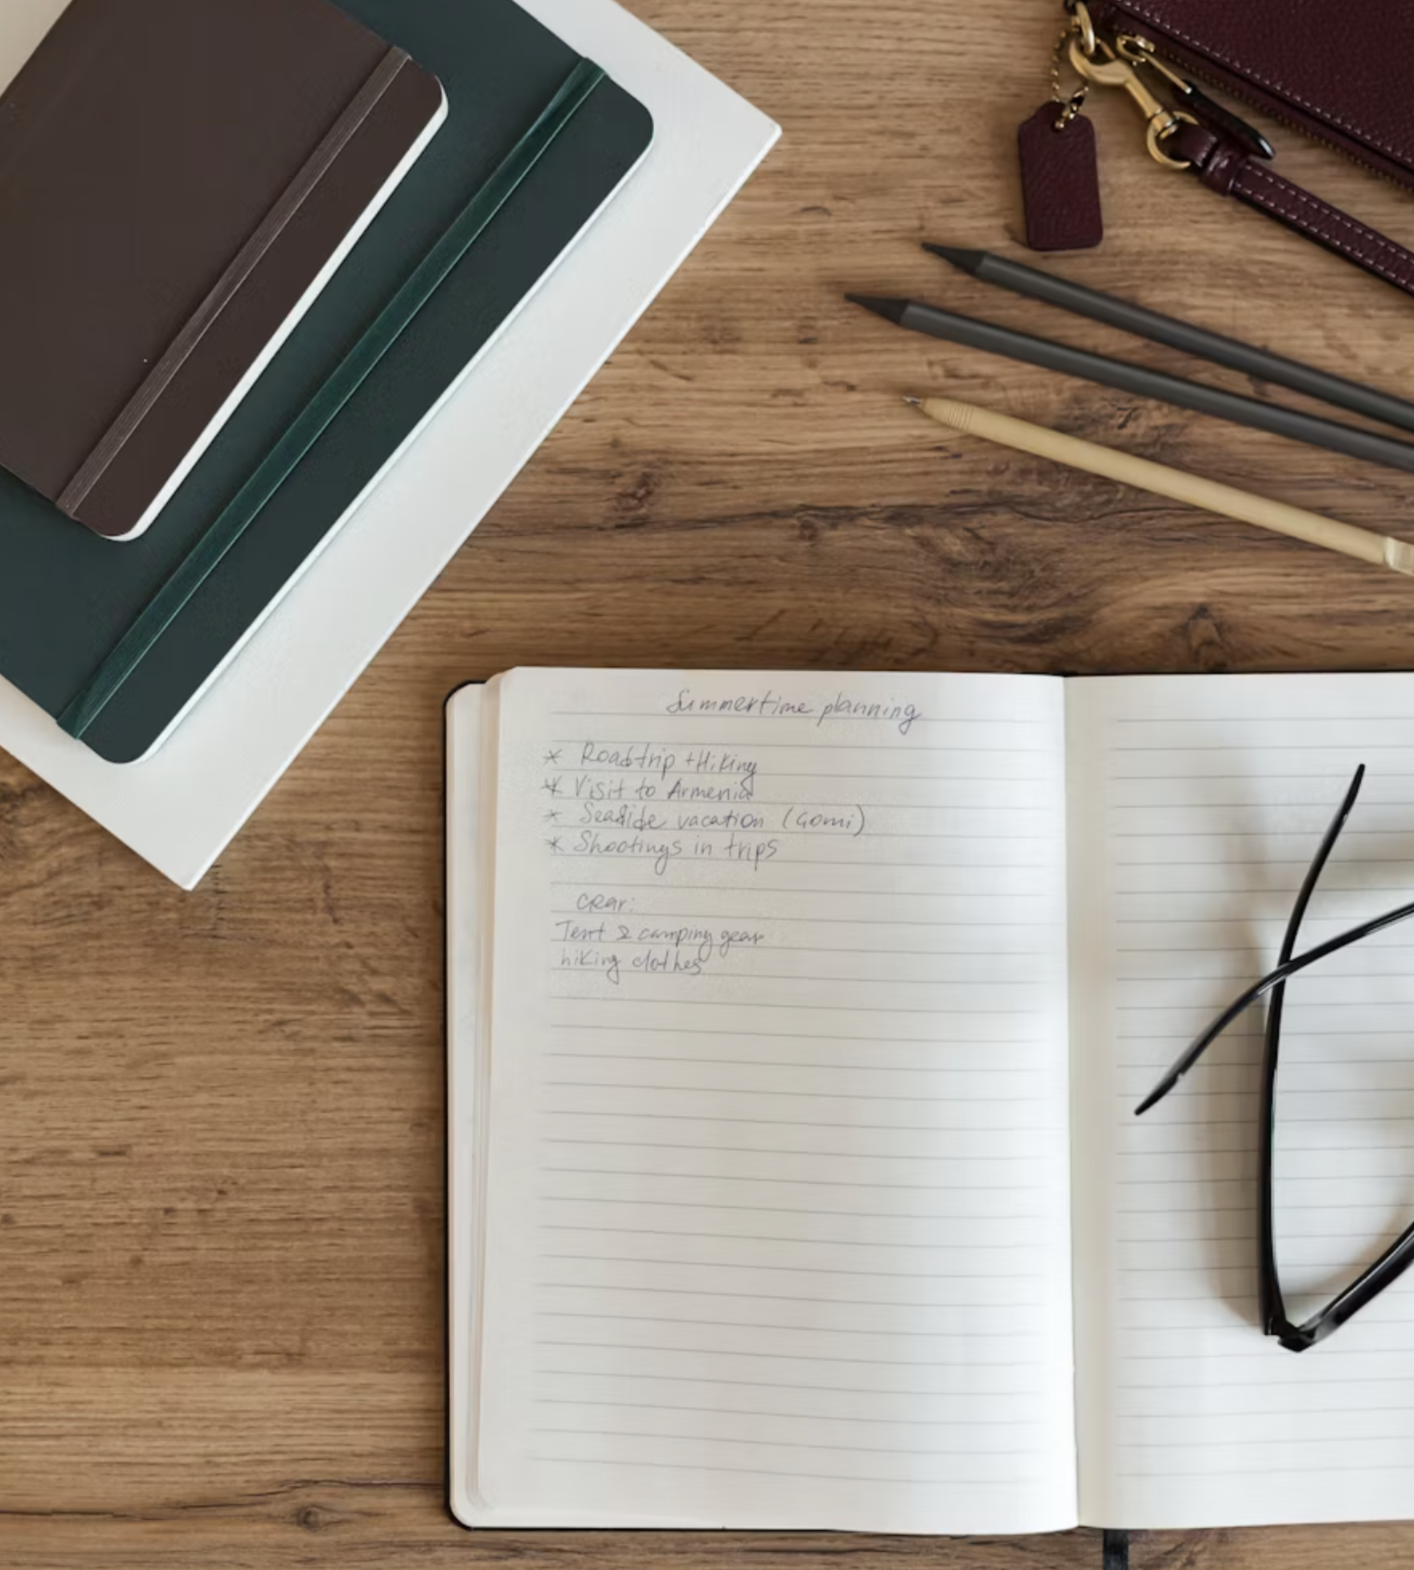 Summertime planning
* Roadtrip + Hiking
* Visit to Armenia
* Seaside vacation (Gomi)
* Shootings in trips
Gear:
Tent & camping gear
hiking clothes